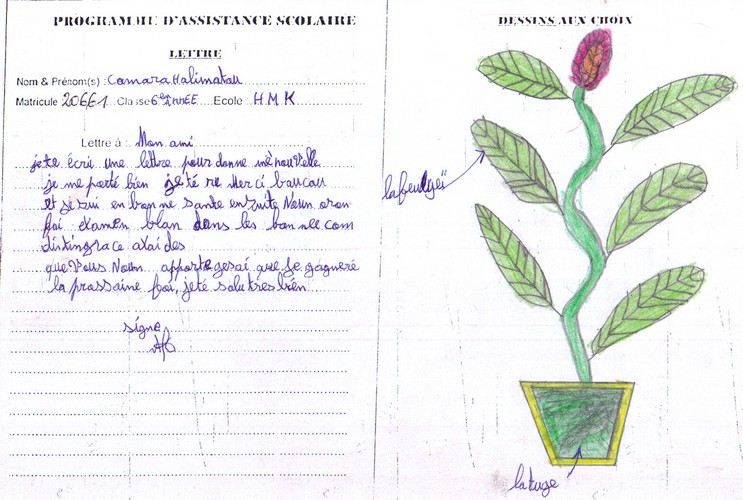 PROGRAMME D'ASSISTANCE SCOLAIRE
LETTRE
Nom & Prénom(s) : Camara Halimatou
Matricule 20661 Classe 6e Année Ecole : H M K
Lettre à : Mon ami
je te écri une lettre pour donne mè nouvelle
je me porté bien je té re Merci baucau
et je sui en bon ne sante ensuite Noun avon
fai examen blan dans les bonnee com
disting race a l'ai des
que Vous Noun apporte gesai que je gagneré
la prassaine foi, je té salu tres bien
signe
DESSINS AUX CHOIX
la feuigeï
la tuge